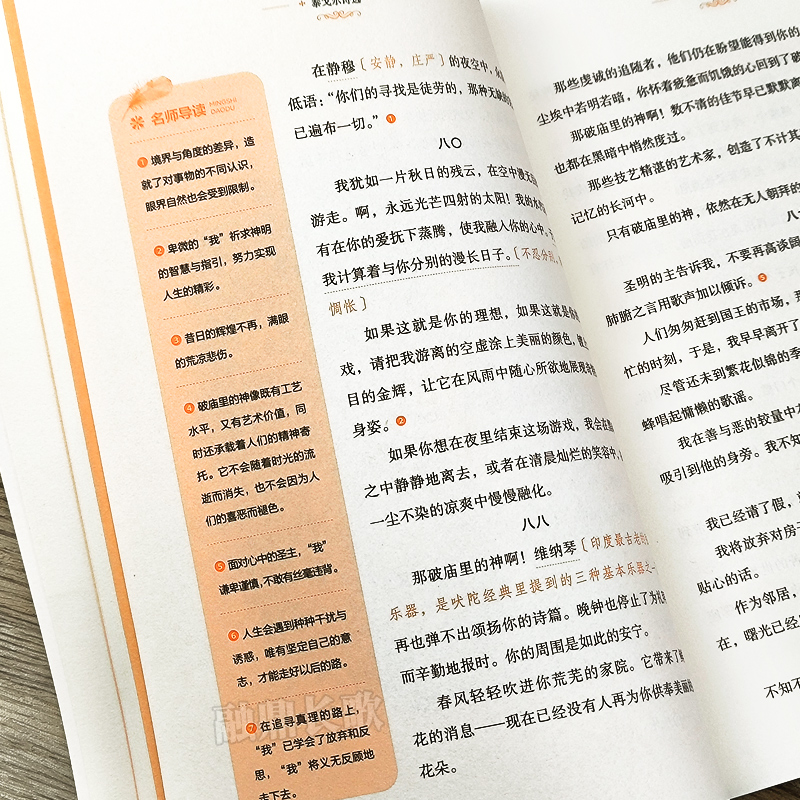 泰戈尔诗选
名师导读
MINGSHI
DAODU
① 境界与角度的差异，造
就了对事物的不同认识，
眼界自然也会受到限制。
② 卑微的“我”祈求神明
的智慧与指引，努力实现
人生的精彩。
③ 昔日的辉煌不再，满眼
的荒凉悲伤。
④ 破庙里的神像既有工艺
水平，又有艺术价值，同
时还承载着人们的精神寄
托。它不会随着时光的流
逝而消失，也不会因为人
们的喜恶而褪色。
⑤ 面对心中的圣主，“我”
谦卑谨慎，不敢有丝毫违背。
⑥ 人生会遇到种种干扰与
诱惑，唯有坚定自己的意
志，才能走好以后的路。
⑦ 在追寻真理的路上，
“我”已学会了放弃和反
思，“我”将义无反顾地
走下去。
在静穆〔安静，庄严〕的夜空中，
低语：“你们的寻找是徒劳的，那种无缺的
已遍布一切。”①
八〇
我犹如一片秋日的残云，在空中漫无目
游走。啊，永远光芒四射的太阳！我的水
有在你的爱抚下蒸腾，使我融入你的心中，于
我计算着与你分别的漫长日子。〔不忍分别，
惆怅〕
如果这就是你的理想，如果这就是你的
戏，请把我游离的空虚涂上美丽的颜色，
目的金辉，让它在风雨中随心所欲地展现
身姿。②
如果你想在夜里结束这场游戏，我会在
之中静静地离去，或者在清晨灿烂的笑容中，
一尘不染的凉爽中慢慢融化。
八八
那破庙里的神啊！维纳琴〔印度最古老的
乐器，是吠陀经典里提到的三种基本乐器之一
再也弹不出颂扬你的诗篇。晚钟也停止了为
而辛勤地报时。你的周围是如此的安宁。
春风轻轻吹进你荒芜的家院。它带来了
花的消息——现在已经没有人再为你供奉美丽的
花朵。
那些虔诚的追随者，他们仍在盼望能得到你的
年，你怀着疲惫而饥饿的心回到了破
尘埃中若明若暗，
那破庙里的神啊！数不清的佳节早已默默离
也都在黑暗中悄然度过。
那些技艺精湛的艺术家，创造了不计其
记忆的长河中。
只有破庙里的神，依然在无人朝拜的
八
圣明的主告诉我，不要再高谈阔
肺腑之言用歌声加以倾诉。⑤
人们匆匆赶到国王的市场，
忙的时刻，于是，我早早离开了
尽管还未到繁花似锦的季
蜂唱起慵懒的歌谣。
我在善与恶的较量中
吸引到他的身旁。我不知
我已经请了假，
我将放弃对房
贴心的话。
作为邻居，
在，曙光已经
不知不
融鼎长歌